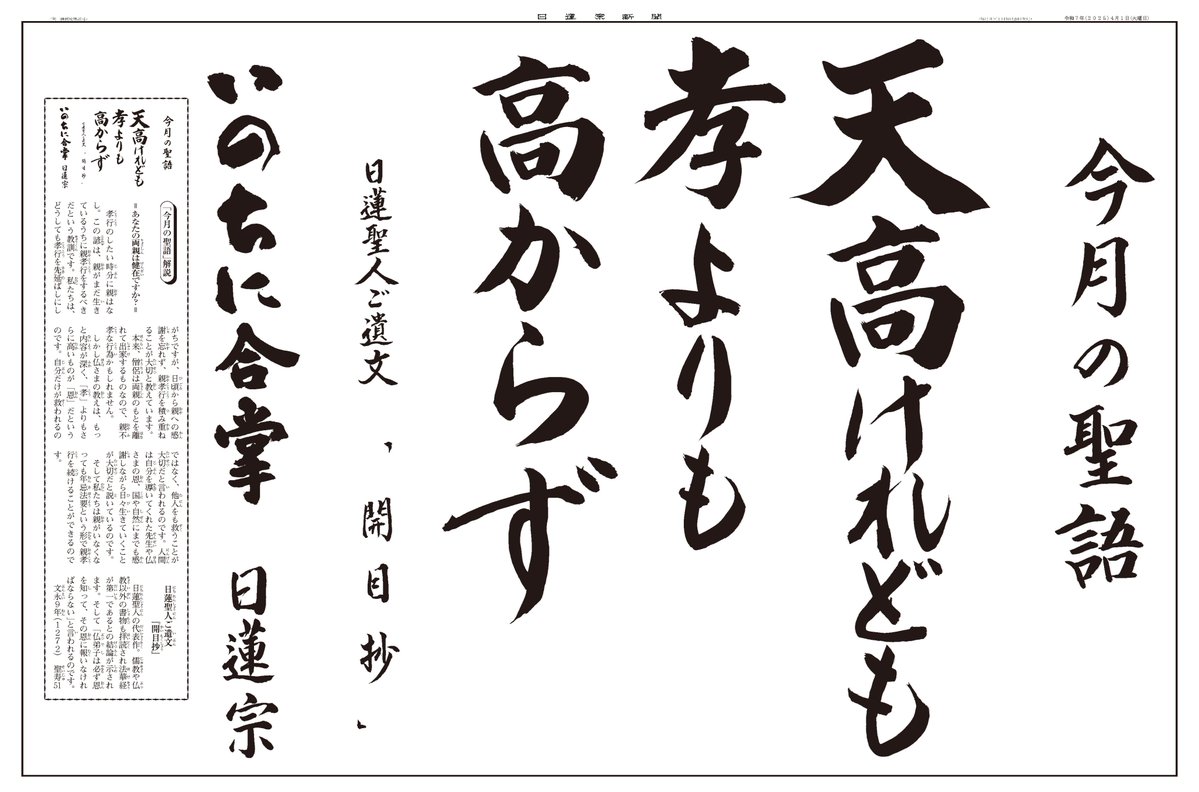 日蓮宗新聞
令和7年(2025)4月1日(火曜日)
今月の聖語
天高けれども
孝よりも
高からず
日蓮聖人ご遺文
「開目抄」
いのちに合掌 日蓮宗
今月の聖語
天高けれども
孝よりも
高からず
いのちに合掌 日蓮宗
「今月の聖語」解説
=あなたの両親は健在ですか?=
孝行のしたい時分に親はな
し。この諺は、親がまだ生き
ているうちに親孝行をするべき
だという教訓です。私たちは、
どうしても孝行を先延ばしにし
がちですが、日頃から親への感
謝を忘れず、親孝行を積み重ね
ることが大切と教えています。
本来、僧侶は両親のもとを離
れて出家するものなので、親不
孝な行為かもしれません。
しかし仏さまの教えは、もっ
と内容が深く、「孝」よりもさ
らに高いものが「恩」だという
のです。自分だけが救われるの
ではなく、他人をも救うことが
大切だと言われるのです。人間
は自分を導いてくれた先生や仏
さまの恩、国や自然にまでも感
謝しながら日々生きていくこと
が大切だと説いているのです。
そして私たちは親がいなくな
っても年忌法要という形で親孝
行を続けることができるので
す。
日蓮聖人ご遺文
「開目抄」
日蓮聖人の代表作。儒教や仏
教以外の書物も拝読され法華経
が第一であるとの結論が示され
ます。そして「仏弟子は必ず恩
を知って、その恩に報いなけれ
ばならない」と言われるのです。
文永9年(1272) 聖寿51